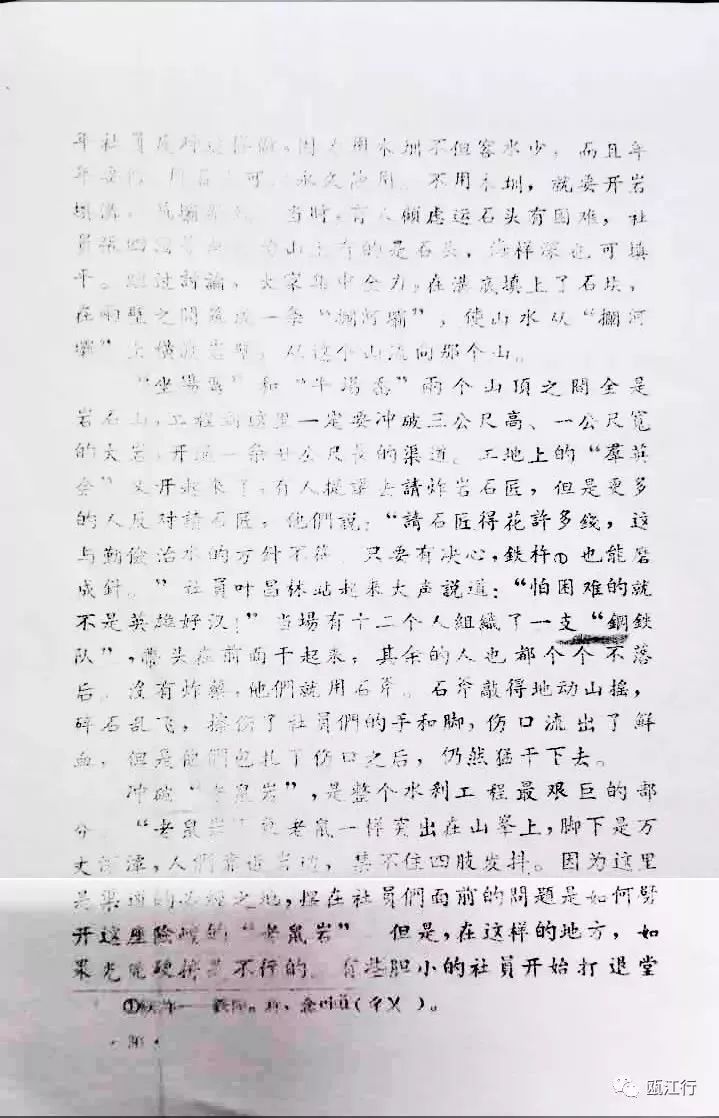 年社員反对这样做。因为用木圳不但容水少，而且年
年要 用石 可 永久 用。不用木圳，就要开岩
填 ，筑壩 。当时，有人顧虑运石头有困难，社
員張四 山上有的是石头，海样深也可填
平。經过討論，大家集中全力，在 底填上了石块，
在兩壁之間筑成一条“攔河壩”，使山水从“攔河
壩”上橫 岩壁，从这个山流向那个山。
“坐 ”和“牛 ”兩个山頂之間全是
岩石山，工程到这里一定要冲破三公尺高、一公尺寬
的大岩，开通一条廿公尺長的渠道。工地上的“羣英
会”又开起来了，有人提議去請炸岩石匠，但是更多
的人反对請石匠，他們說：“請石匠得花許多錢，这
与勤儉治水的方針不符 只要有决心，鉄杵①也能磨
成針。”社員叶昌林站起来大声說道：“怕困难的就
不是英雄好汉！”当場有十二个人組織了一支“鋼鉄
队”，帶头在前面干起来，其余的人也都个个不落
后。沒有炸藥，他們就用石斧。石斧敲得地动山搖，
碎石乱飞，擦伤了社員們的手和脚，伤口流出了鮮
血，但是他們包扎了伤口之后，仍然猛干下去。
冲破“老鼠岩”，是整个水利工程最艰巨的部
分 “老鼠岩” 老鼠一样突出在山峯上，脚下是万
丈深潭，人們靠近岩边，禁不住四肢发抖。因为这里
是渠道的必經之地，摆在社員們面前的問題是如何劈
开这座險峻的“老鼠岩” 但是，在这样的地方，如
果光凭硬拚是不行的。有些胆小的社員开始打退堂
①鉄杵—— 。杵，念chǔ（ㄔㄨ ）。
瓯江行